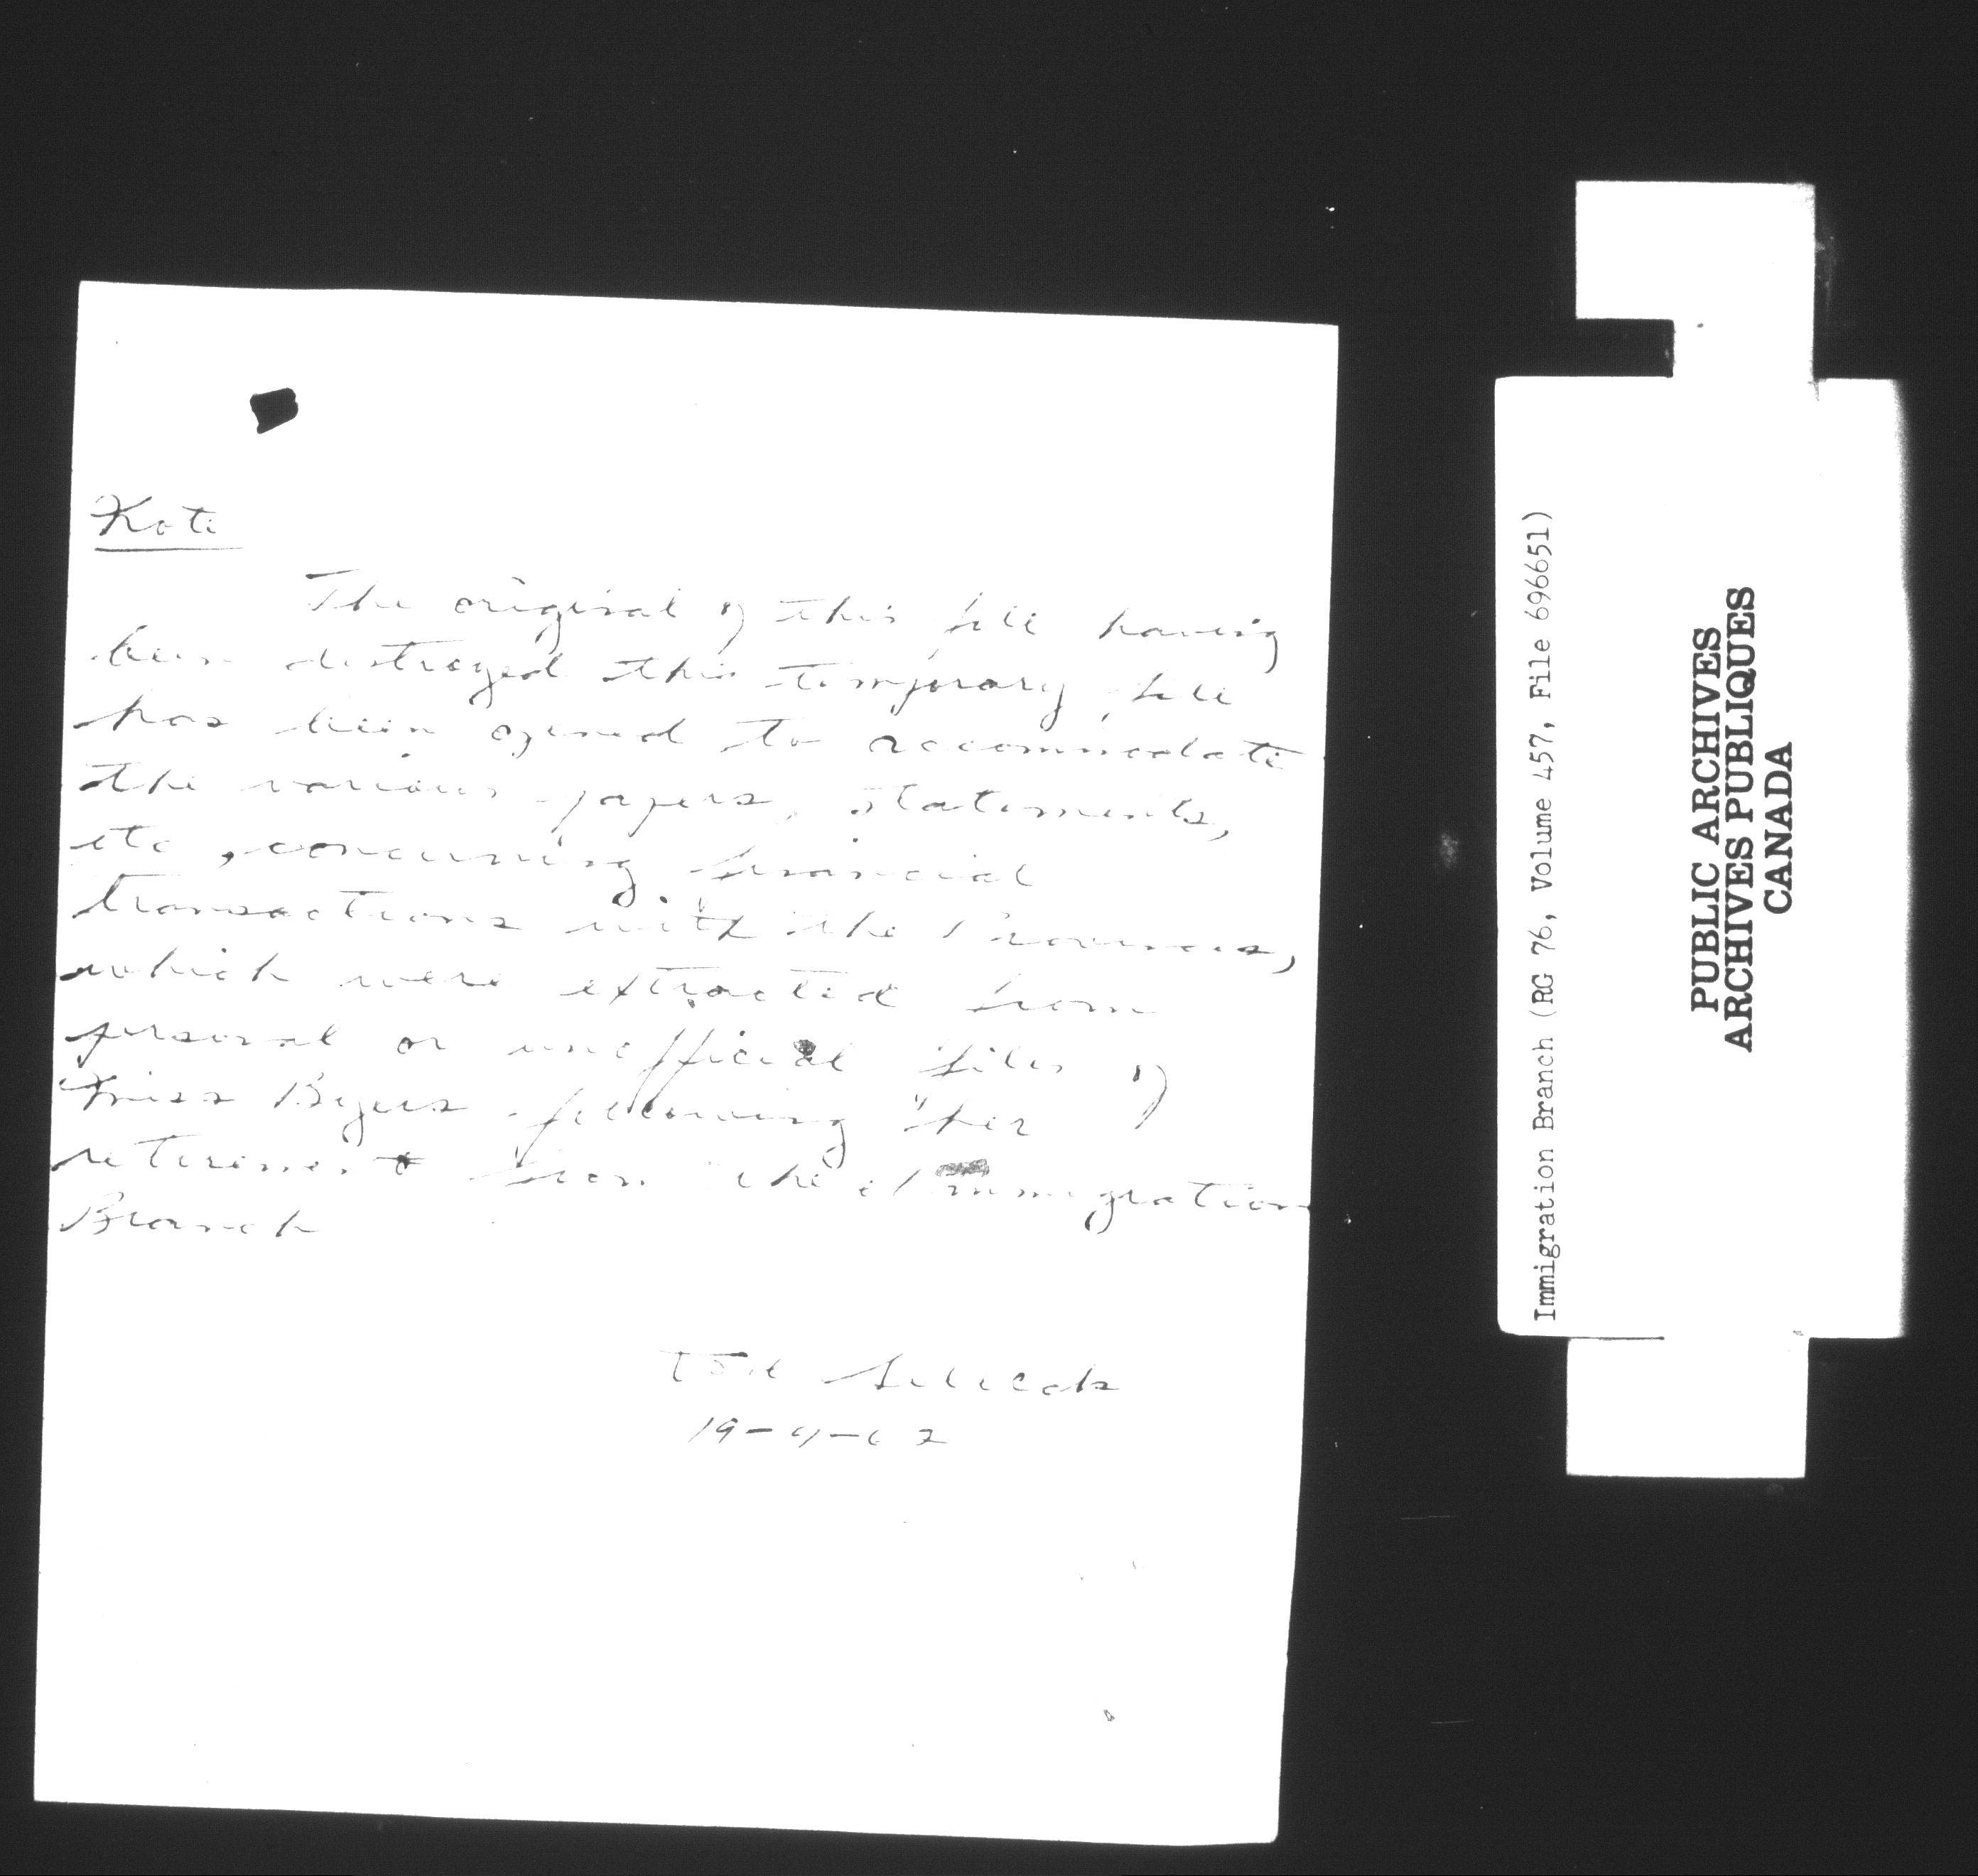 Note
The original of this file having
been destroyed this temporary file
has been opened to accommodate
the various papers, statements,
etc, concerning financial
transactions with the Provinces,
which were extracted from
personal or unofficial files of
Miss Byers following her
retirement from the Immigration
Branch
19-4-62
Immigration Branch (RG 76, Volume 457, File 696651)
PUBLIC ARCHIVES
ARCHIVES PUBLIQUES
CANADA